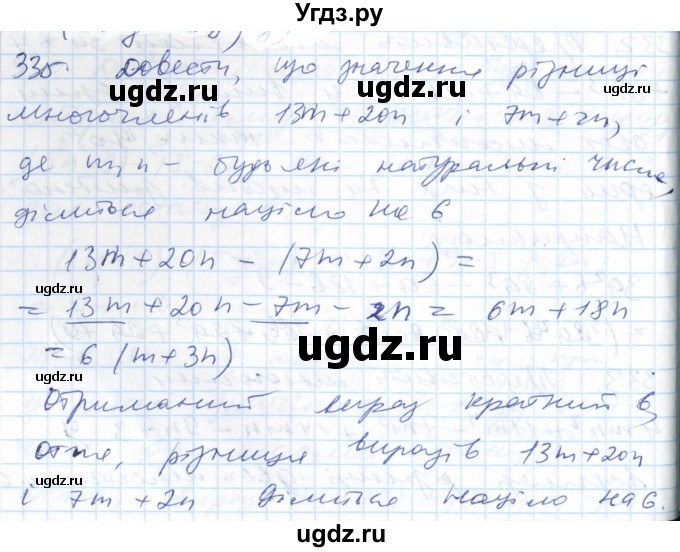 Угдз.ру
335. Довести, що значення різниці
многочленів 13m + 20n і 7m + 2n,
де m, n - будь які натуральні числа,
ділиться націло на 6
13m + 20n - (7m + 2n) =
= 13m + 20n - 7m - 2n = 6m + 18n
= 6 (m + 3n)
Отриманий вираз кратний 6,
отже, різниця виразів 13m + 20n
і 7m + 2n ділиться націло на 6.
ugdz.ru
ugdz.ru
ugdz.ru
ugdz.ru
ugdz.ru
ugdz.ru
ugdz.ru
ugdz.ru
ugdz.ru